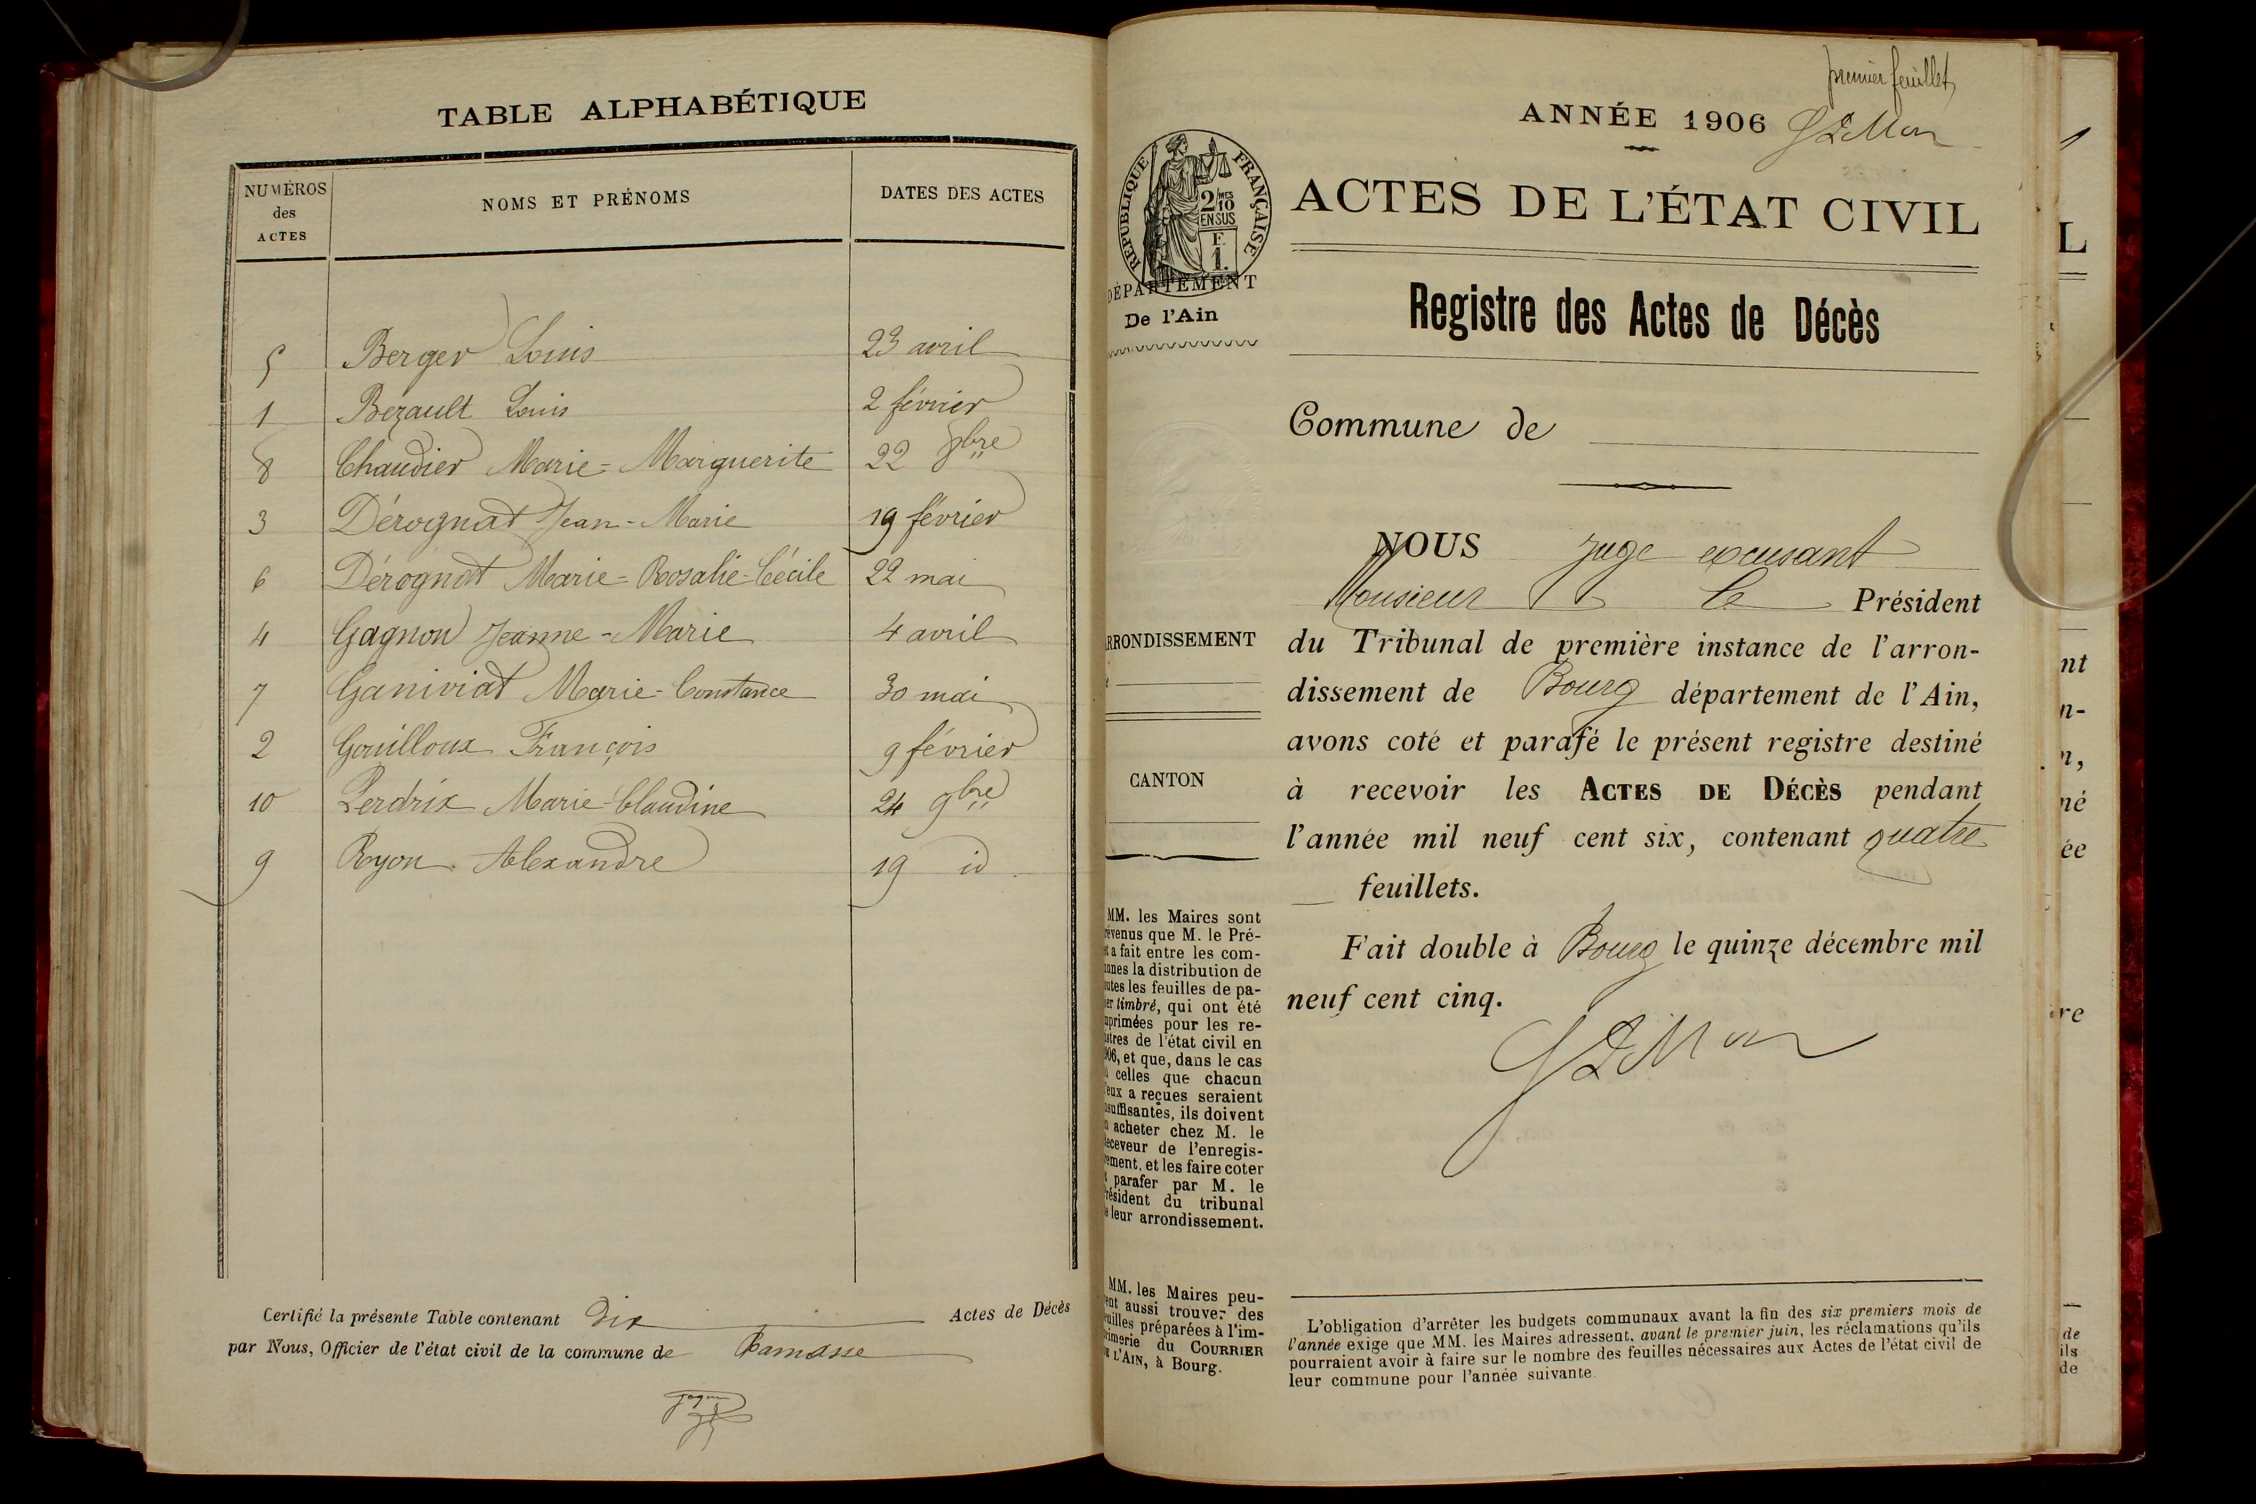 TABLE ALPHABÉTIQUE
NUMÉROS
des
ACTES
NOMS ET PRÉNOMS
DATES DES ACTES
5 Berger Louis 23 avril
1 Bezault Louis 2 février
8 Chaudier Marie=Marguerite 22 8bre
3 Dérognat Jean-Marie 19 février
6 Dérognat Marie=Rosalie-Cécile 22 mai
4 Gagnon Jeanne-Marie 4 avril
7 Ganiviat Marie-Constance 30 mai
2 Gouilloux François 9 février
10 Perdrix Marie-Claudine 24 9bre
9 Ryon Alexandre 19 id
Certifié la présente Table contenant Dix Actes de Décès
par Nous, Officier de l'état civil de la commune de Ramasse
premier feuillet
ANNÉE 1906
RÉPUBLIQUE FRANÇAISE
2/10 MES
EN SUS
F.
1.
DÉPARTEMENT
De l'Ain
ARRONDISSEMENT
CANTON
MM. les Maires sont
révenus que M. le Pré-
t a fait entre les com-
unes la distribution de
outes les feuilles de pa-
er timbré, qui ont été
mprimées pour les re-
istres de l'état civil en
906, et que, dans le cas
celles que chacun
'eux a reçues seraient
nsuffisantes, ils doivent
n acheter chez M. le
eceveur de l'enregis-
rement, et les faire coter
t parafer par M. le
résident du tribunal
e leur arrondissement.
MM. les Maires peu-
ent aussi trouver des
euilles préparées à l'im-
rimerie du COURRIER
E L'AIN, à Bourg.
ACTES DE L'ÉTAT CIVIL
Registre des Actes de Décès
Commune de
NOUS juge excusant
Monsieur le Président
du Tribunal de première instance de l'arron-
dissement de Bourg département de l'Ain,
avons coté et parafé le présent registre destiné
à recevoir les ACTES DE DÉCÈS pendant
l'année mil neuf cent six, contenant quatre
feuillets.
Fait double à Bourg le quinze décembre mil
neuf cent cinq.
L'obligation d'arrêter les budgets communaux avant la fin des six premiers mois de
l'année exige que MM. les Maires adressent, avant le premier juin, les réclamations qu'ils
pourraient avoir à faire sur le nombre des feuilles nécessaires aux Actes de l'état civil de
leur commune pour l'année suivante.
L
nt
n-
n,
né
ée
re
de
ils
de